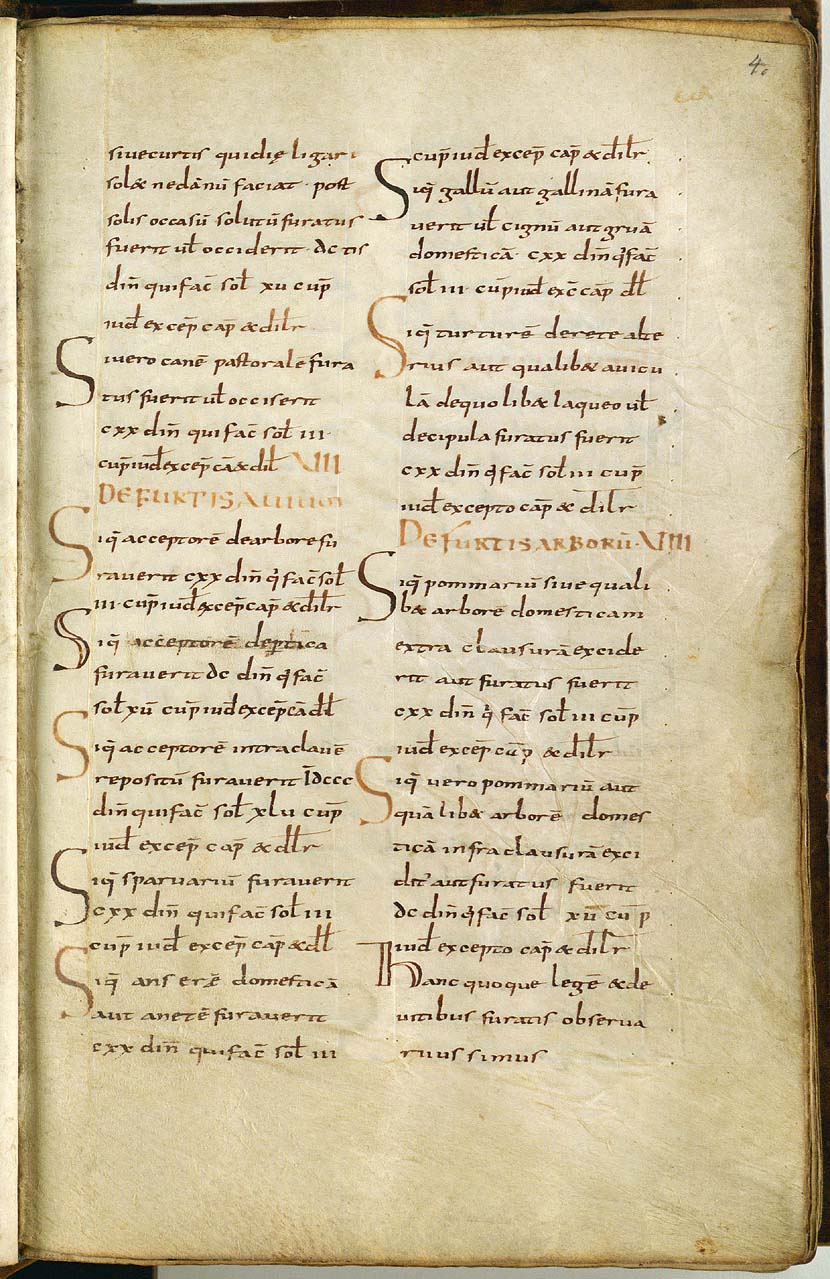 4.
siue curtis qui dię ligari
sol& ne dānū faciat · post
solis occasū solutū furatus
fuerit ul̄ occiderit · dc tis
din̄ qui fac̄ sol̄ xu cup̄
iud̄ excep̄ cap̄ & dilr̄
Si uero canē pastoralē fura
tus fuerit ul̄ occiserit
cxx din̄ qui fac̄ sol̄ iii ·
cup̄ iud̄ excep̄ cā & dil̄ VIII
DE FURTIS AUIUM
Siq̄ acceptorē de arbore fu
rauerit cxx din̄ q̄ fac̄ sol̄
iii · cup̄ iud̄ excep̄ cap̄ & dilr̄
Siq̄ acceptorē de ptica
furauerit dc din̄ q̄ fac̄
sol̄ xū cup̄ iud̄ excep̄ cā dl̄
Siq̄ acceptorē intra clauē
repositū furauerit Īdccc
din̄ qui fac̄ sol̄ xlu cup̄
iud̄ excep̄ cap̄ & dlr̄
Siq̄ sparuariū furauerit
cxx din̄ qui fac̄ sol̄ iii
cup̄ iud̄ excep̄ cap̄ & dl̄
Siq̄ anserē domesticā
aut anetē furauerit
cxx din̄ qui fac̄ sol̄ iii
cup̄ iud̄ excep̄ cap̄ & dilr̄
Siq̄ gallū aut gallinā fura
uerit ul̄ cignū aut gruā
domesticā · cxx din̄ q̄ fac̄
sol̄ iii · cup̄ iud̄ exc̄ cap̄ dl̄
Siq̄ turturē de rete alte
rius aut qualib& auicu
lā de quolib& laqueo ul̄
decipula furatus fuerit
cxx din̄ q̄ fac̄ sol̄ iii cup̄
iud̄ excepto cap̄ & dilr̄
DE FURTIS ARBORŪ · VIIII
Siq̄ pommariū siue quali
b& arborē domesticam
extra clausurā excide
rit aut furatus fuerit
cxx din̄ q̄ fac̄ sol̄ iii cup̄
iud̄ excep̄ cup̄ & dilr̄
Siq̄ uero pommariū aut
quālib& arborē domes
ticā infra clausurā exci
dit̄ aut furatus fuerit
dc din̄ q̄ fac̄ sol̄ xū cup̄
iud̄ excepto cap̄ & dilr̄
Hanc quoque legē & de
uitibus furatis obserua
ruus simus